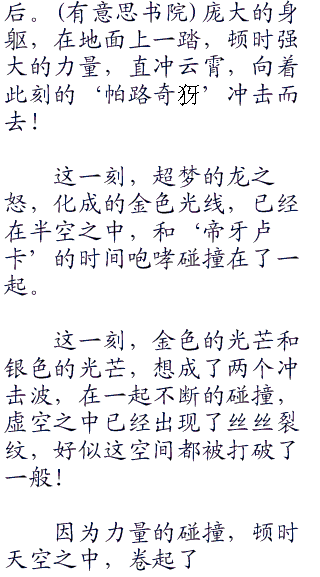 后。(有意思书院)庞大的身
躯，在地面上一踏，顿时强
大的力量，直冲云霄，向着
此刻的‘帕路奇犽’冲击而
去！
这一刻，超梦的龙之
怒，化成的金色光线，已经
在半空之中，和‘帝牙卢
卡’的时间咆哮碰撞在了一
起。
这一刻，金色的光芒和
银色的光芒，想成了两个冲
击波，在一起不断的碰撞，
虚空之中已经出现了丝丝裂
纹，好似这空间都被打破了
一般！
因为力量的碰撞，顿时
天空之中，卷起了